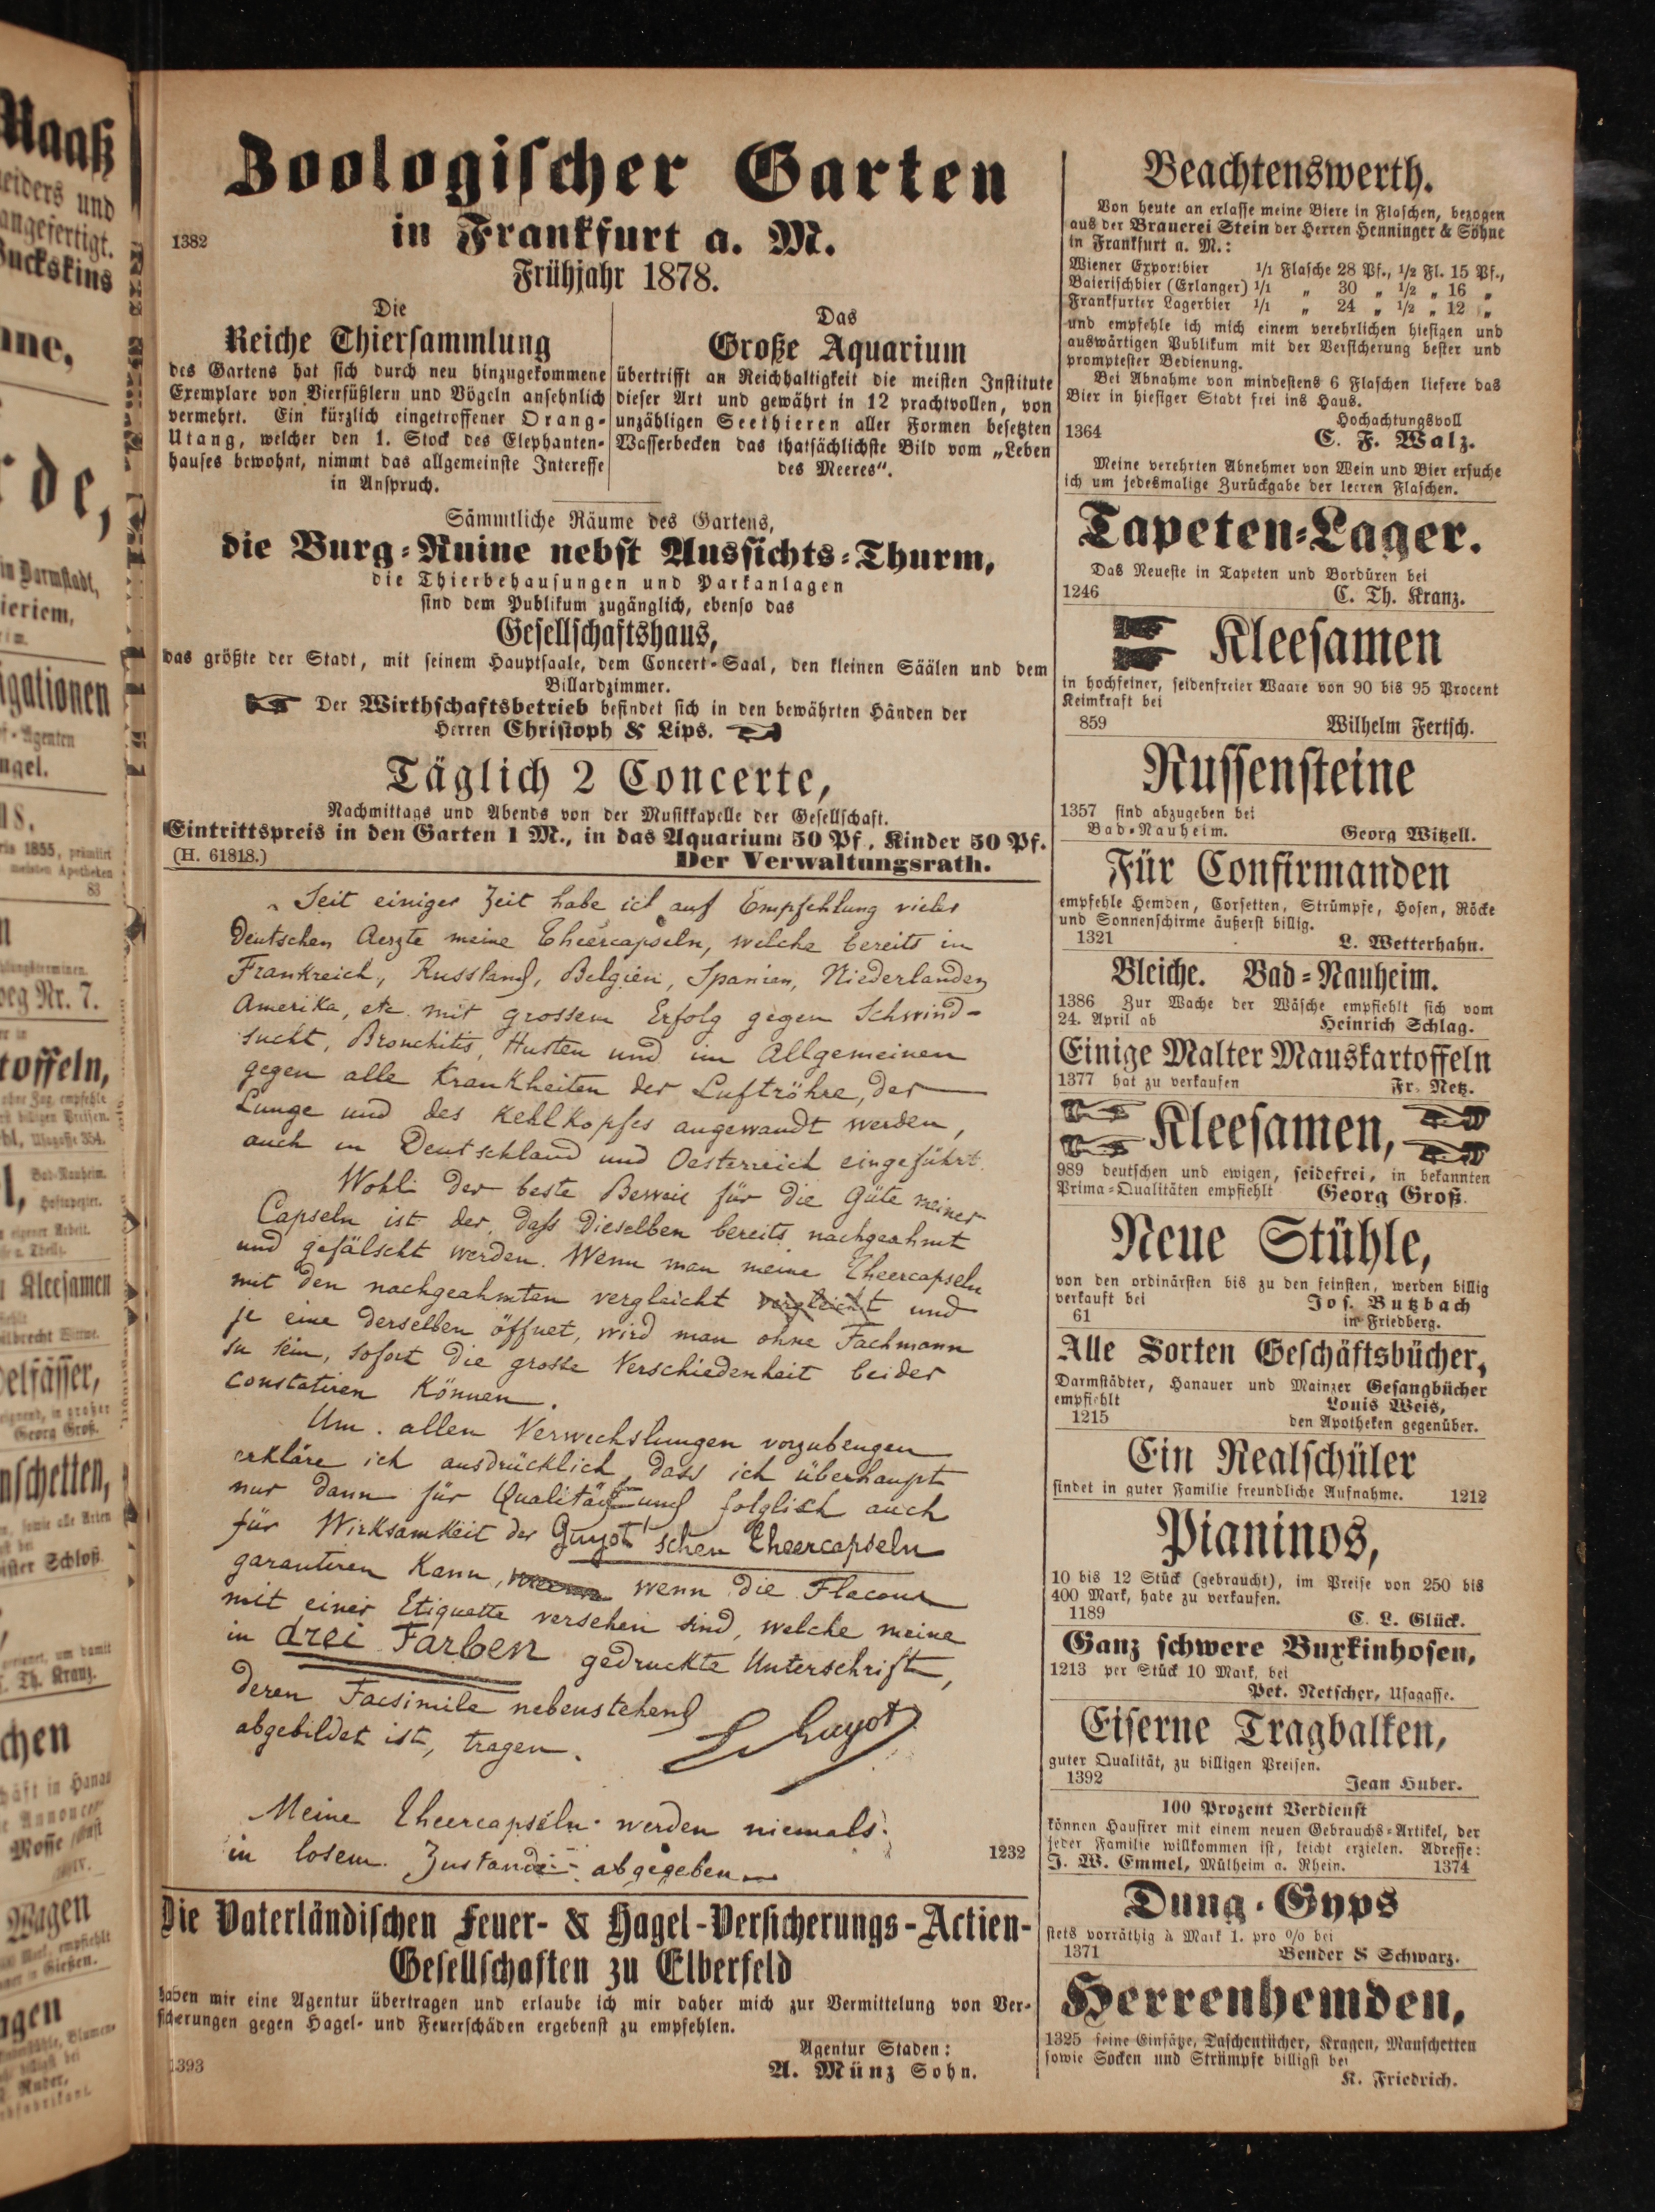 Zoologischer Garten
in Frankfurt a. M.
1382
Frühjahr 1878.
Die
Reiche Thiersammlung
des Gartens hat sich durch neu hinzugekommene
Exemplare von Vierfüßlern und Vögeln ansehnlich
vermehrt. Ein kürzlich eingetroffener Orang-
Utang, welcher den 1. Stock des Elephanten-
hauses bewohnt, nimmt das allgemeinste Interesse
in Anspruch.
Das
Große Aquarium
übertrifft an Reichhaltigkeit die meisten Institute
dieser Art und gewährt in 12 prachtvollen, von
unzähligen Seethieren aller Formen besetzten
Wasserbecken das thatsächlichste Bild vom „Leben
des Meeres“.
Sämmtliche Räume des Gartens,
die Burg-Ruine nebst Aussichts-Thurm,
die Thierbehausungen und Parkanlagen
sind dem Publikum zugänglich, ebenso das
Gesellschaftshaus,
das größte der Stadt, mit seinem Hauptsaale, dem Concert-Saal, den kleinen Säälen und dem
Billardzimmer.
Der Wirthschaftsbetrieb befindet sich in den bewährten Händen der
Herren Christoph & Lips.
Täglich 2 Concerte,
Nachmittags und Abends von der Musikkapelle der Gesellschaft.
Eintrittspreis in den Garten 1 M., in das Aquarium 50 Pf., Kinder 50 Pf.
(H. 61818.) Der Verwaltungsrath.
Seit einiger Zeit habe ich auf Empfehlung vieler
Deutschen Aerzte meine Theercapseln, welche bereits in
Frankreich, Russland, Belgien, Spanien, Niederlanden
Amerika, etc. mit grossem Erfolg gegen Schwind-
sucht, Bronchitis, Husten und im Allgemeinen
gegen alle Krankheiten der Luftröhre, der
Lunge und des Kehlkopfes angewandt werden,
auch in Deutschland und Oesterreich eingeführt.
Wohl der beste Beweis für die Güte meiner
Capseln ist der, daß dieselben bereits nachgeahmt
und gefälscht werden. Wenn man meine Theercapseln
mit den nachgeahmten vergleicht vergleicht und
je eine derselben öffnet, wird man ohne Fachmann
zu sein, sofort die grosse Verschiedenheit beider
constatiren können.
Um allen Verwechslungen vorzubeugen
erkläre ich ausdrücklich, dass ich überhaupt
nur dann für Qualität und folglich auch
für Wirksamkeit der Guyot'schen Theercapseln
garantiren kann, wenn die Flacons
mit einer Etiquette versehen sind, welche meine
in drei Farben gedruckte Unterschrift,
deren Facsimile nebenstehend
abgebildet ist, tragen.
Guyot
Meine Theercapseln werden niemals
in losem Zustande abgegeben
1232
Die Vaterländischen Feuer- & Hagel-Versicherungs-Actien-
Gesellschaften zu Elberfeld
haben mir eine Agentur übertragen und erlaube ich mir daher mich zur Vermittelung von Ver-
sicherungen gegen Hagel- und Feuerschäden ergebenst zu empfehlen.
Agentur Staden:
1393 A. Münz Sohn.
Beachtenswerth.
Von heute an erlasse meine Biere in Flaschen, bezogen
aus der Brauerei Stein der Herren Henninger & Söhne
in Frankfurt a. M.:
Wiener Exportbier 1/1 Flasche 28 Pf., 1/2 Fl. 15 Pf.,
Baierischbier (Erlanger) 1/1 „ 30 „ 1/2 „ 16 „
Frankfurter Lagerbier 1/1 „ 24 „ 1/2 „ 12 „
und empfehle ich mich einem verehrlichen hiesigen und
auswärtigen Publikum mit der Versicherung bester und
promptester Bedienung.
Bei Abnahme von mindestens 6 Flaschen liefere das
Bier in hiesiger Stadt frei ins Haus.
Hochachtungsvoll
1364 C. F. Walz.
Meine verehrten Abnehmer von Wein und Bier ersuche
ich um jedesmalige Zurückgabe der leeren Flaschen.
Tapeten-Lager.
Das Neueste in Tapeten und Bordüren bei
1246 C. Th. Kranz.
Kleesamen
in hochfeiner, seidenfreier Waare von 90 bis 95 Procent
Keimkraft bei
859 Wilhelm Fertsch.
Russensteine
1357 sind abzugeben bei
Bad-Nauheim. Georg Witzell.
Für Confirmanden
empfehle Hemden, Corsetten, Strümpfe, Hosen, Röcke
und Sonnenschirme äußerst billig.
1321 L. Wetterhahn.
Bleiche. Bad-Nauheim.
1386 Zur Wache der Wäsche empfiehlt sich vom
24. April ab Heinrich Schlag.
Einige Malter Mauskartoffeln
1377 hat zu verkaufen Fr. Netz.
Kleesamen,
989 deutschen und ewigen, seidefrei, in bekannten
Prima-Qualitäten empfiehlt Georg Groß.
Neue Stühle,
von den ordinärsten bis zu den feinsten, werden billig
verkauft bei Jos. Butzbach
61 in Friedberg.
Alle Sorten Geschäftsbücher,
Darmstädter, Hanauer und Mainzer Gesangbücher
empfiehlt Louis Weis,
1215 den Apotheken gegenüber.
Ein Realschüler
findet in guter Familie freundliche Aufnahme. 1212
Pianinos,
10 bis 12 Stück (gebraucht), im Preise von 250 bis
400 Mark, habe zu verkaufen.
1189 C. L. Glück.
Ganz schwere Burkinhosen,
1213 per Stück 10 Mark, bei
Pet. Netscher, Usagasse.
Eiserne Tragbalken,
guter Qualität, zu billigen Preisen.
1392 Jean Huber.
100 Prozent Verdienst
können Hausirer mit einem neuen Gebrauchs-Artikel, der
jeder Familie willkommen ist, leicht erzielen. Adresse:
J. W. Emmel, Mülheim a. Rhein. 1374
Dung-Gyps
stets vorräthig à Mark 1. pro % bei
1371 Bender & Schwarz.
Herrenhemden,
1325 feine Einsätze, Taschentücher, Kragen, Manschetten
sowie Socken und Strümpfe billigst bei
K. Friedrich.